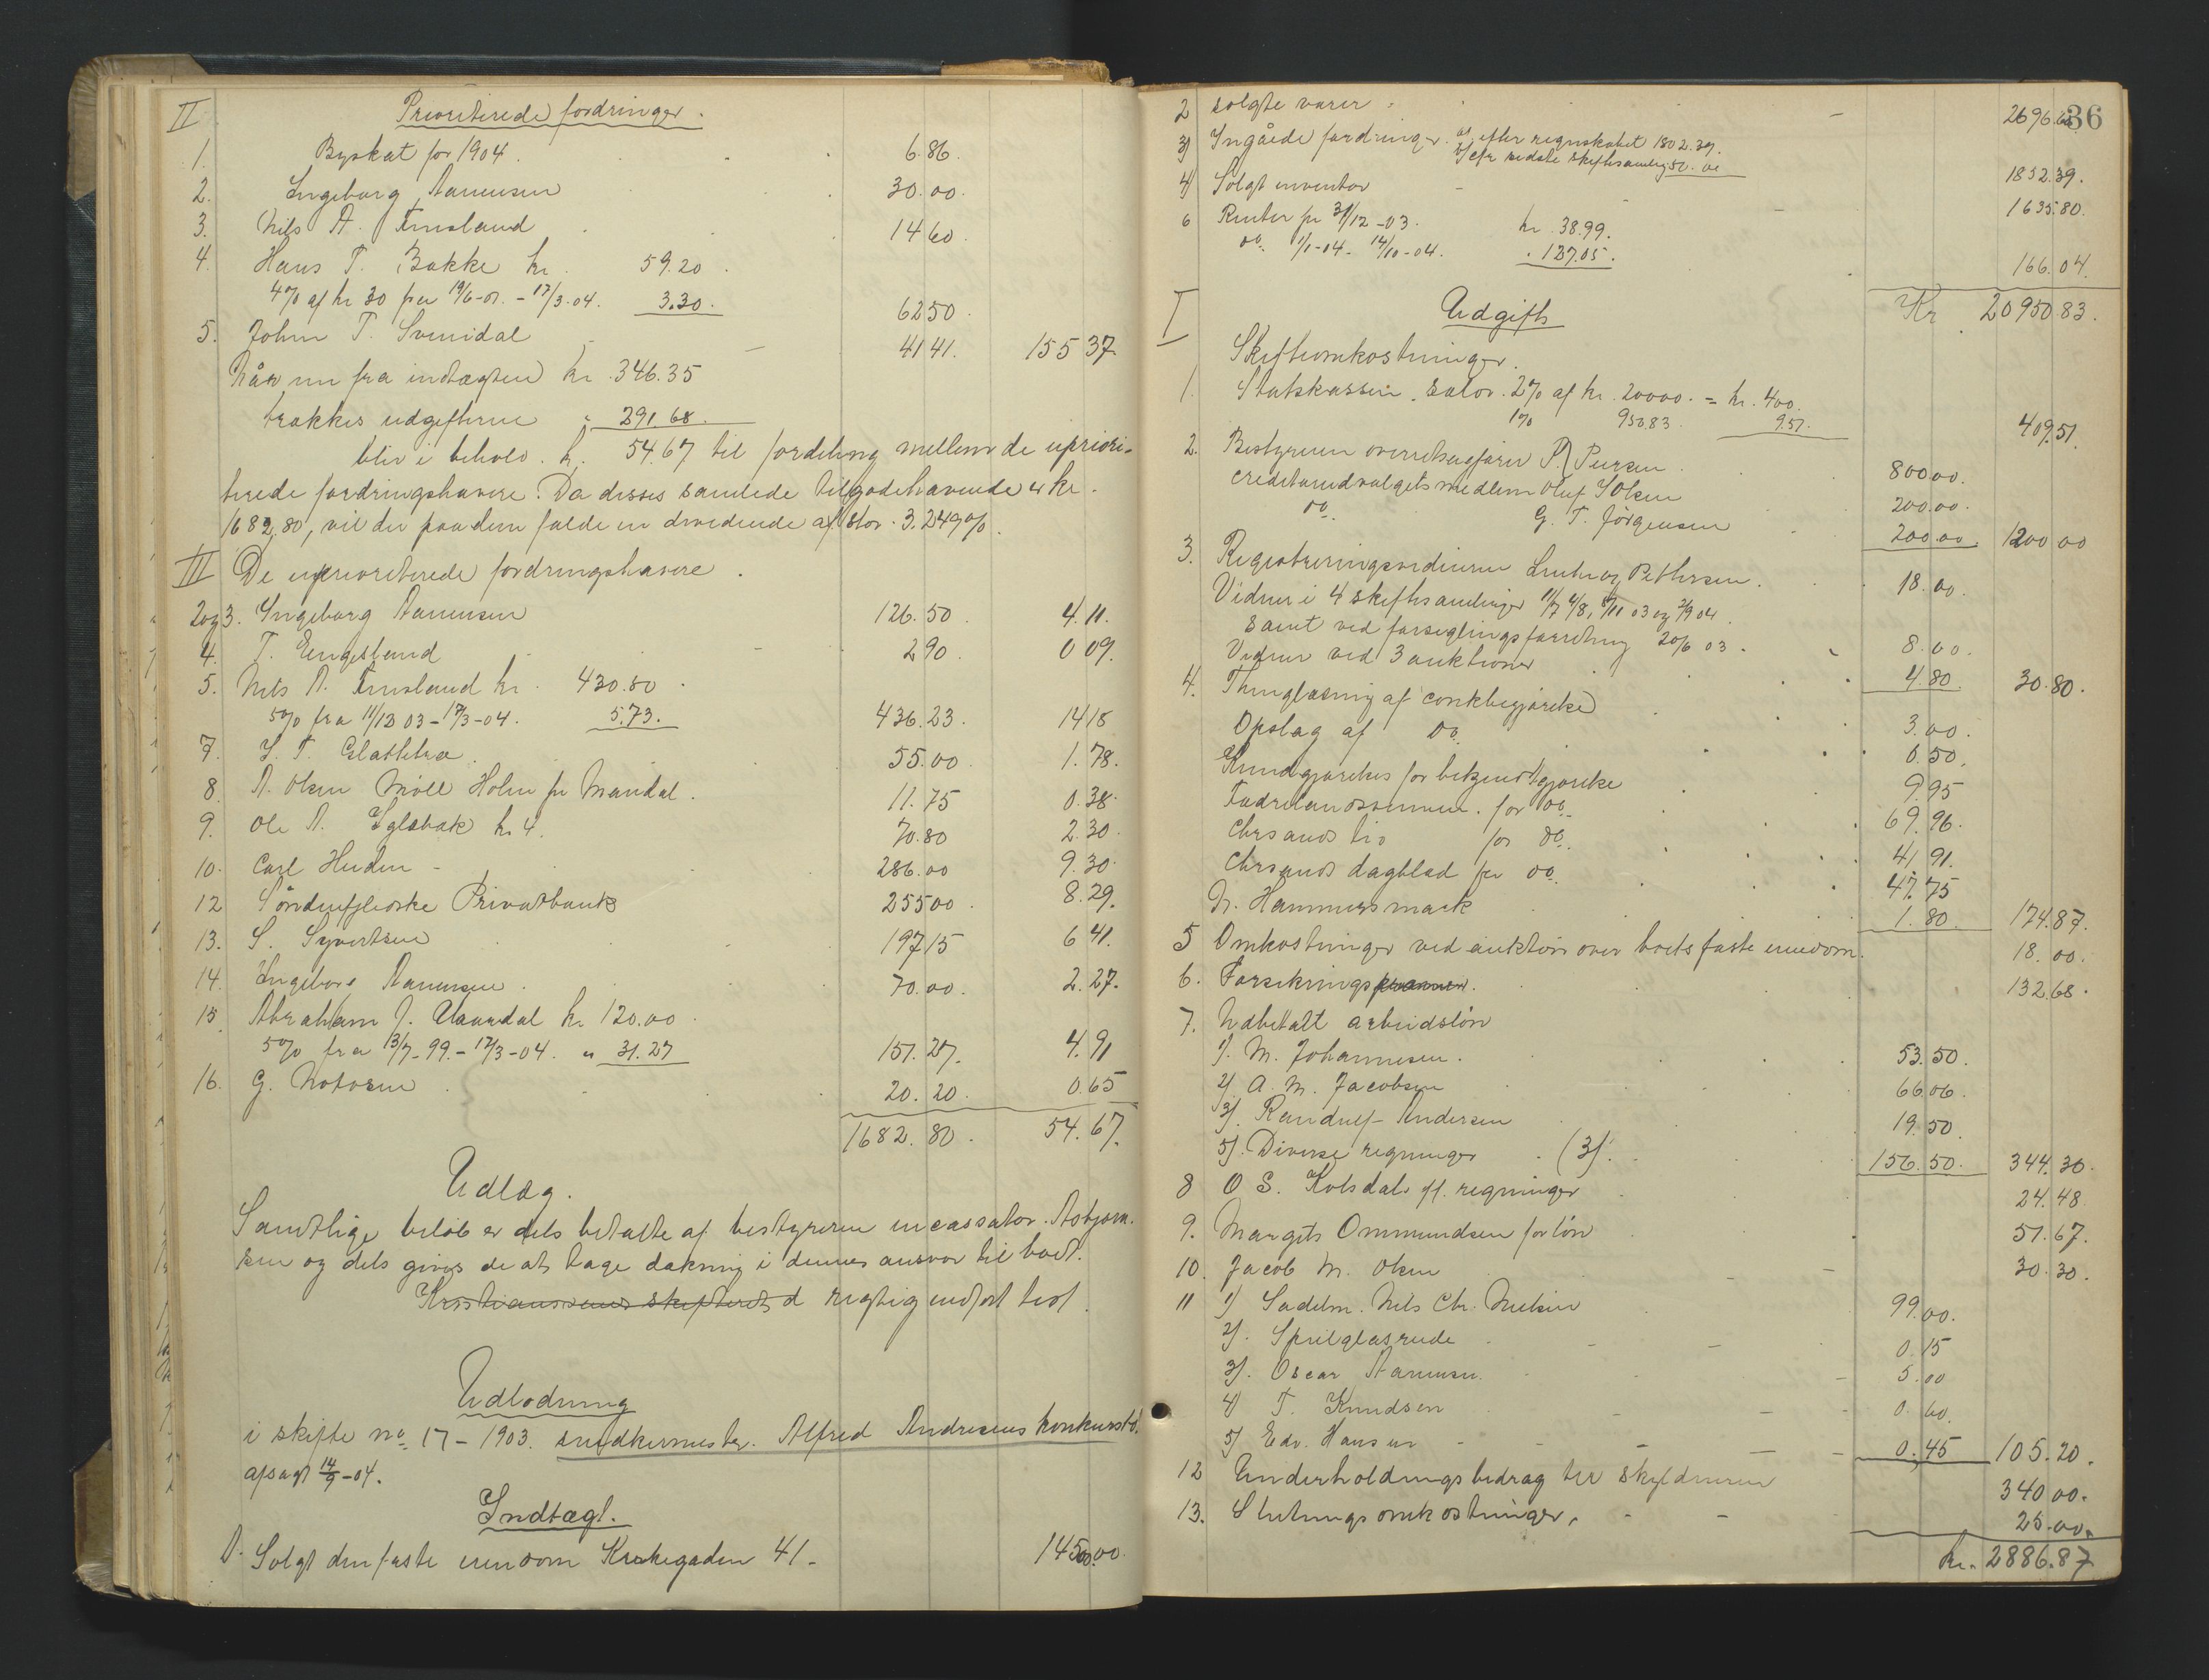 II Prioriterede fordringer.
1. Byskat for 1904. 6.86.
2. Ingeborg Aanensen 30.00.
3. Nils A. Finsland 14 60.
4. Hans T. Bakke kr. 59.20.
4% af kr 30 fra 19/6-01. - 17/3-04. 3.30. 62 50.
5. John T. Svinidal 41 41. 155 37.
Når nu fra indtægten kr. 346.35
trækkes udgifterne " 291.68.
blir i behold. kr. 54.67 til fordeling mellem de upriori-
terede fordringshavere. Da disses samlede tilgodehavende er kr.
1682,80, vil der paa dem falde en dividende af stor. 3.249%.
III De uprioriterede fordringshavere.
2 og 3. Ingeborg Aanensen 126.50 4.11.
4. T. Eingesland 2 90. 0 09.
5. Nils A. Finsland kr. 430.50.
5% fra 11/12 03 - 17/3-04. 5.73. 436.23. 14 18
7. 55.00. 1.78.
8. A. Olsen Møll Holm pr Mandal. 11.75 0.38.
9. Ole A. kr 4. 70.80 2.30.
10. Carl 286.00 9.30.
12 Søndenfjelske Privatbank 255 00. 8.29.
13. S. Syvertsen 197 15 6 41.
14. Ingeborg Aanensen. 70.00. 2.27.
15. Abraham J. Aaardal kr 120.00.
5% fra 13/7-99.- 17/3-04. " 31.27 151.27. 4.91
16. G. 20.20. 0.65
1682.80. 54.67.
Udlæg.
Samtlige beløb er dels betalte af bestyreren incassator. Asbjørn-
sen og dels gives de at tage dækning i dennes ansvar til boet.
Kristianssands skifteret d rigtig indført test.
Udlodning
i skifte no. 17 - 1903. snedkermester. Alfred Andresens konkursbo.
afsagt 14/9-04.
Indtægt.
1. Solgt den faste eiendom Kirkegaden 41 - 14500.00.
36
2 solgte varer - 2696.60
3) Ingåede fordringer. a) efter regnskabet 1802.39.
b) efter sidste skiftesamling 50.00 1852.39.
4) Solgt inventar 1635.80.
6 Renter pr 31/12-03. kr. 38.99.
do. 1/1-04.- 14/10-04. " 127.05. 166.04.
Kr 20950 83.
I Udgift
Skifteomkostninger.
1. Statskassen. salær. 2% af kr. 20000. = kr. 400.
1% 950.83. 9.51. 409.51.
2. Bestyreren overretssagfører P. 800.00.
creditorudvalgets medlem Oluf 200.00.
do. G. T. Jørgensen 200.00. 1200 00
3. Registreringsvidnerne og Petersen. 18.00.
Vidner i 4 skiftesamlinger
samt ved forseglingsforretning 20/6 03. 8.00.
Vidner ved 3 auktioner 4.80. 30.80.
4. Thinglæsning af 3.00.
Opslag af do. 0.50.
Kundgjørelses for 9.95
Fædrelandsvennen. for do. 69.96.
Chrsands tid for do. 41.91.
Chrsands dagblad for do. 47.75
N. Hammersmark 1.80. 174.87.
5 Omkostninger ved auktion over boets faste eiendom. 18.00.
6. Forsikringspræmier. 132.68.
7. Udbetalt arbeidsløn
1). M. Johannesen. 53.50.
2) A. M. Jacobsen 66 06.
3). Randulf Andersen 19.50.
5). Diverse regninger. (3). 156.50. 344.30.
8 O S. Kolsdal. ifl. regninger 24.48
9. Margit Ommundsen for løn 51.67.
10. Jacob M. Olsen 30.30.
11 1) Sadelm. Nils Chr. Nielsen 99.00.
2). Speilglasrude 0.15
3). Oscar Aanensen. 5.00
4) T. Knudsen 0.60.
5) Edv. Hansen 0.45 105.20.
12 Underholdningsbidrag til skyldneren 340 00.
13. Slutningsomkostninger. 25.00.
kr. 2886.87